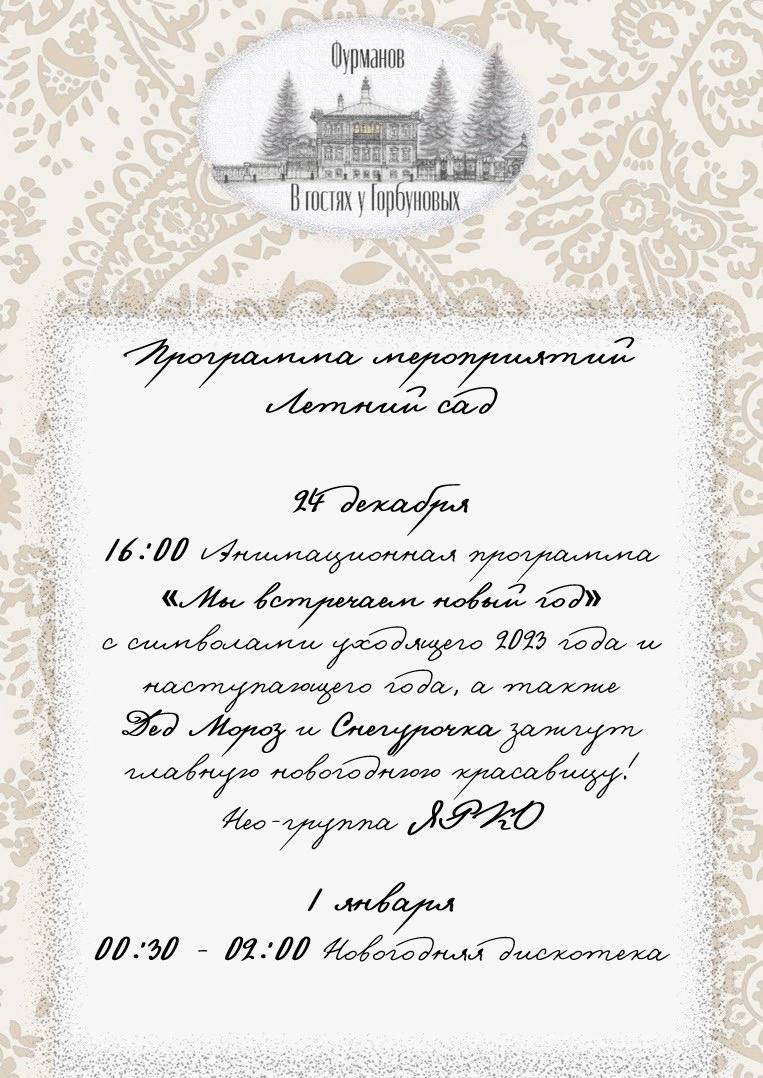 Фурманов
В гостях у Горбуновых
Программа мероприятий
Летний сад
24 декабря
16:00 Анимационная программа
«Мы встречаем новый год»
с символами уходящего 2023 года и
наступающего года, а также
Дед Мороз и Снегурочка зажгут
главную новогоднюю красавицу!
Нео-группа ЯРКО
1 января
00:30 - 02:00 Новогодняя дискотека